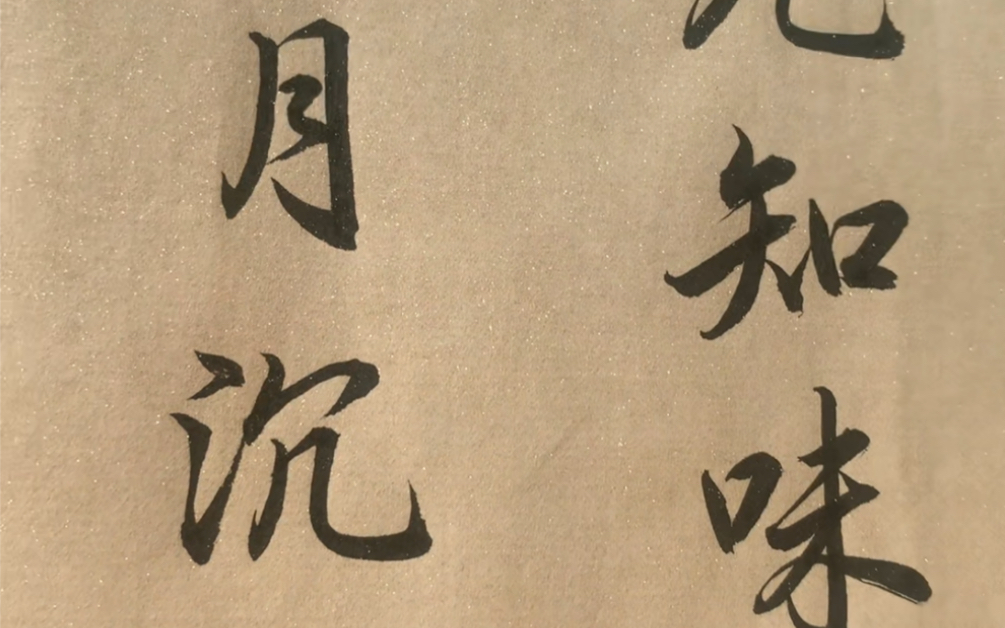 知味
月沉